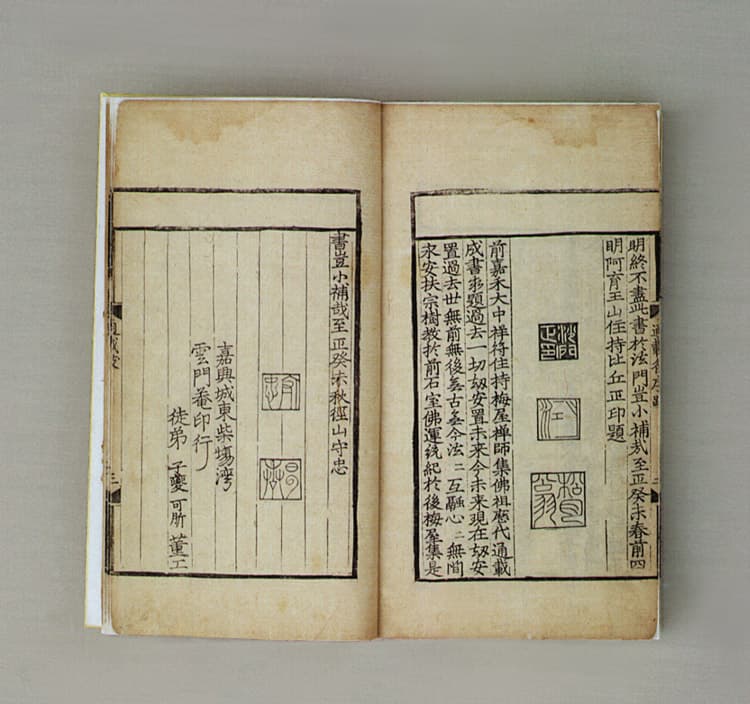 明終不盡此書於法門豈小補哉至正癸未春前四
明阿育王山住持比丘正印題
沙門正印
松月翁
前嘉禾大中祥符住持梅屋禅師集佛祖歴代通載
成書求題過去一切劫安置未来今未来現在劫安
置過去世無前無後羙古羙今法二互融心二無間
永安扶宗樹教於前石室佛運統紀於後梅屋集是
書豈小補哉至正癸未秋徑山守忠
嘉興城東柴塲灣
雲門菴印行
徒弟 子夔 可肵 董工
三